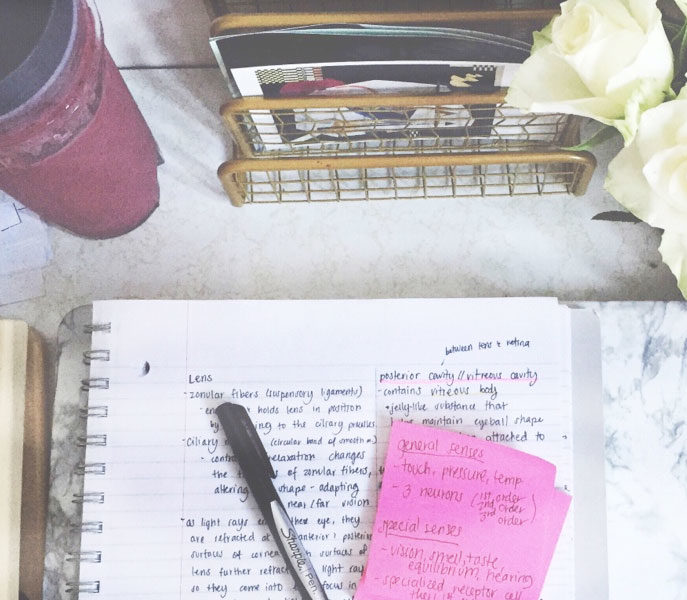 Lens
- zonular fibers (suspensory ligaments)
holds lens in position
by to the ciliary
- ciliary (circular band of smooth m
- relaxation changes
the of zonular fibers,
altering shape - adapting
near/far vision
as light rays the eye, they
are refracted at anterior + posterior
surfaces of cornea surfaces of
lens further light
so they come into focus in
between lens & retina
posterior cavity // vitreous cavity
- contains vitreous body
• jelly-like substance that
maintain eyeball shape
attached to
general senses
- touch, pressure, temp
- 3 neurons (1st order
2nd order
3rd order)
special senses
- vision, smell, taste,
equilibrium, hearing
- specialized receptor cell
Sharpie Pen